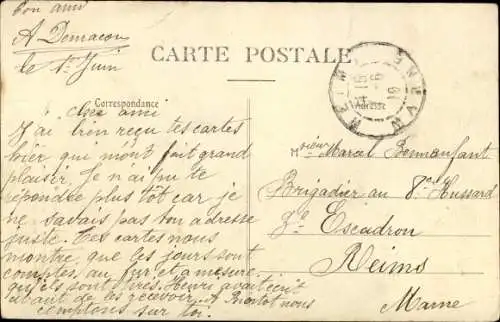 Bon ami
A Demacon
le 1er Juin
CARTE POSTALE
Correspondance
Adresse
cher ami
J'ai bien reçu tes cartes
hier qui m'ont fait grand
plaisir. Je n'ai pu te
répondre plus tôt car je
ne savais pas ton adresse
juste. Tes cartes nous
montre, que les jours sont
comptés, au fur et a mesure
qu'ils sont tirés. Henri avait écrit
avant de les recevoir. A Bientôt nous
comptons sur toi.
Monsieur Marcel
Brigadier au 8e Hussard
2e Escadron
Reims
Marne